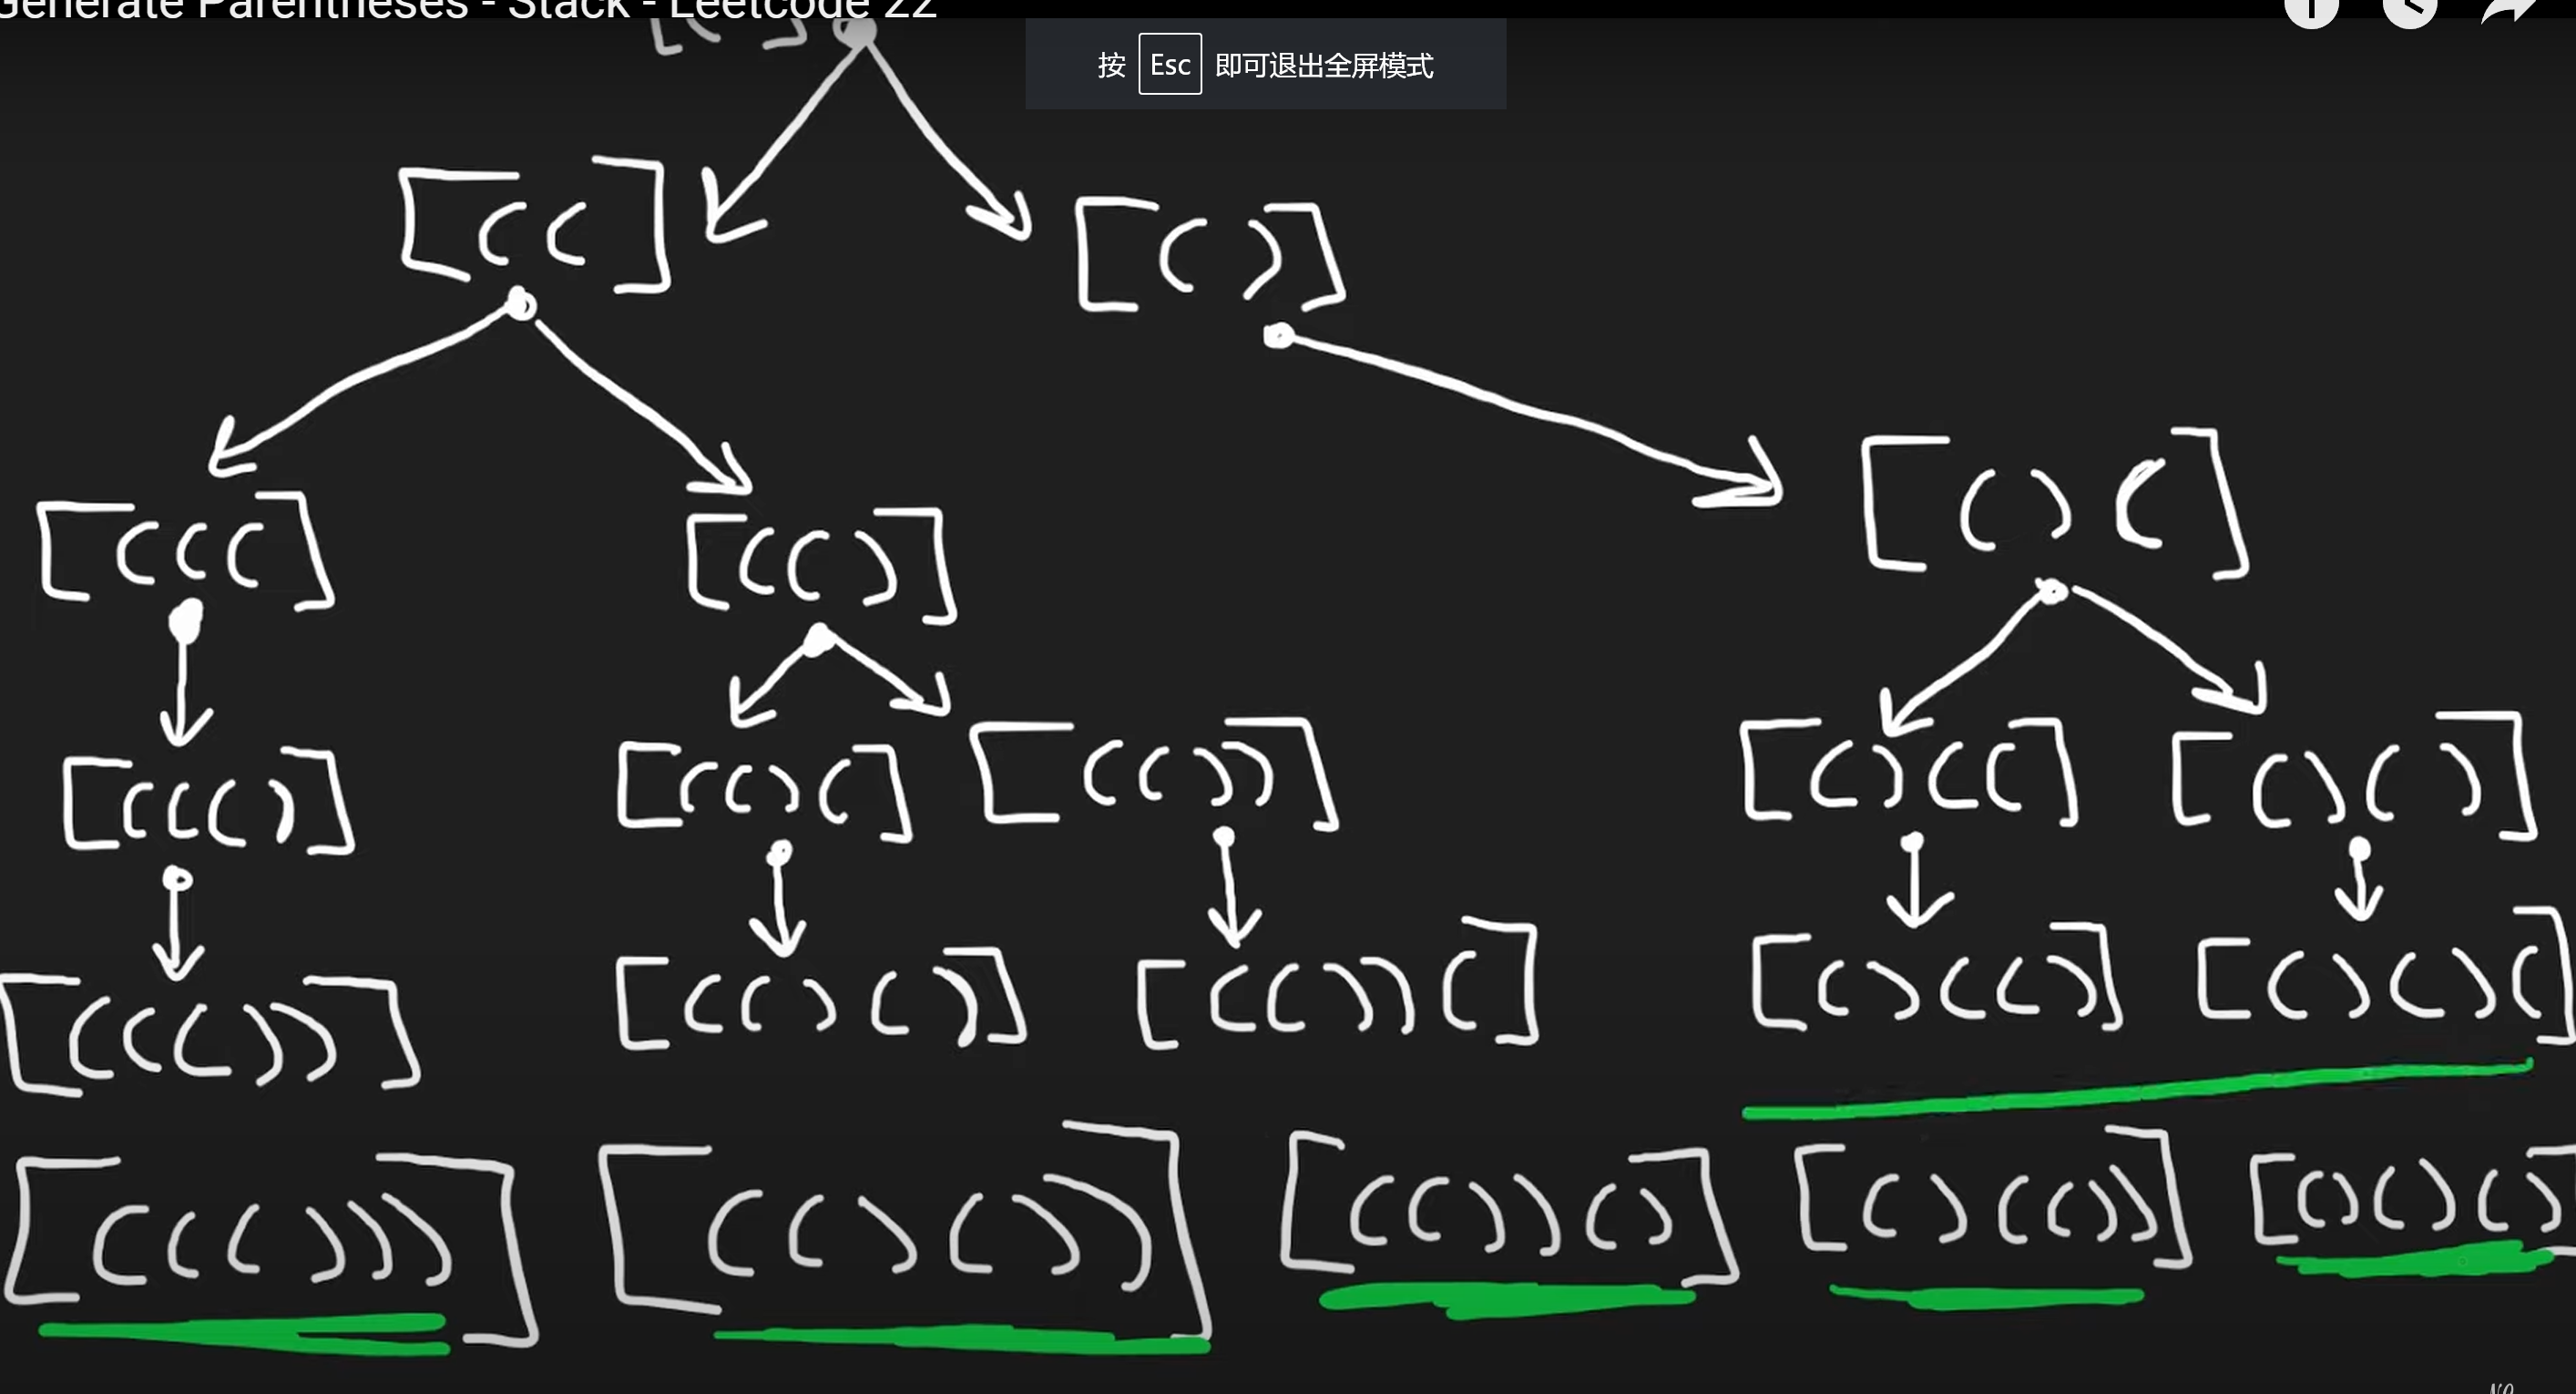 Generate Parentheses - Stack - Leetcode 22
按 Esc 即可退出全屏模式
[( )
[( (] [( )]
[( ( (] [( ( )] [( ) (]
[( ( ( )] [( ( ) (] [( ( ) )] [( ) ( (] [( ) ( )]
[( ( ( ) )] [( ( ) ( )] [( ( ) ) (] [( ) ( ( )] [( ) ( ) (]
[( ( ( ) ) )] [( ( ) ( ) )] [( ( ) ) ( )] [( ) ( ( ) )] [( ) ( ) ( )]